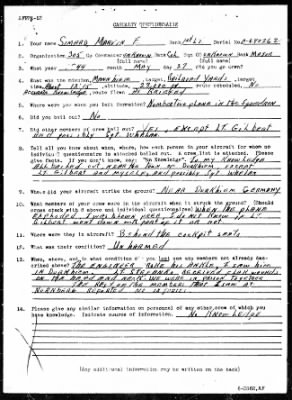 CASUALTY QUESTIONNAIRE
1. Your name Simans Marvin F. Rank 1st Lt. Serial No.
2. Organization 305 Gp Commander Col Sqn CO Major
(full name) (full name)
3. What year 1944 month May day 27 did you go on?
4. What was the mission, Mannheim, target, Railroad Yards, target time, 12:15, altitude,
5. Where were you when you left formation?
6. Did you bail out? No
7. Did other members of crew bail out? Yes, except Lt Gilbert
and possibly Sgt Whalen
8. Tell all you know about when, where, how each person in your aircraft for whom no individual questionnaire is attached bailed out. A crew list is attached. Please give facts. If you don't know, say: "No Knowledge". To my knowledge
all bailed out near the town of Durkheim, except
Lt Gilbert and myself, and possibly Sgt Whalen
9. Where did your aircraft strike the ground? Near Durkheim Germany
10. What members of your crew were in the aircraft when it struck the ground? (Should cross check with 8 above and individual questionnaires) When the plane
exploded I was blown free I do not know if Lt
Gilbert went down with the ship or not
11. Where were they in aircraft? Behind the cockpit seats
12. What was their condition? Unharmed
13. When, where, and in what condition did you last see any members not already described above? The engineer broke his ankle, I saw him
in Durkheim. Lt received flak wounds
on the head and neck. We were in prison together
The rest of the members that I saw at
Nurnburg reported no injuries.
14. Please give any similar information on personnel of any other crew of which you have knowledge. Indicate source of information. No Knowledge
(Any additional information may be written on the back)
6-3862,AF